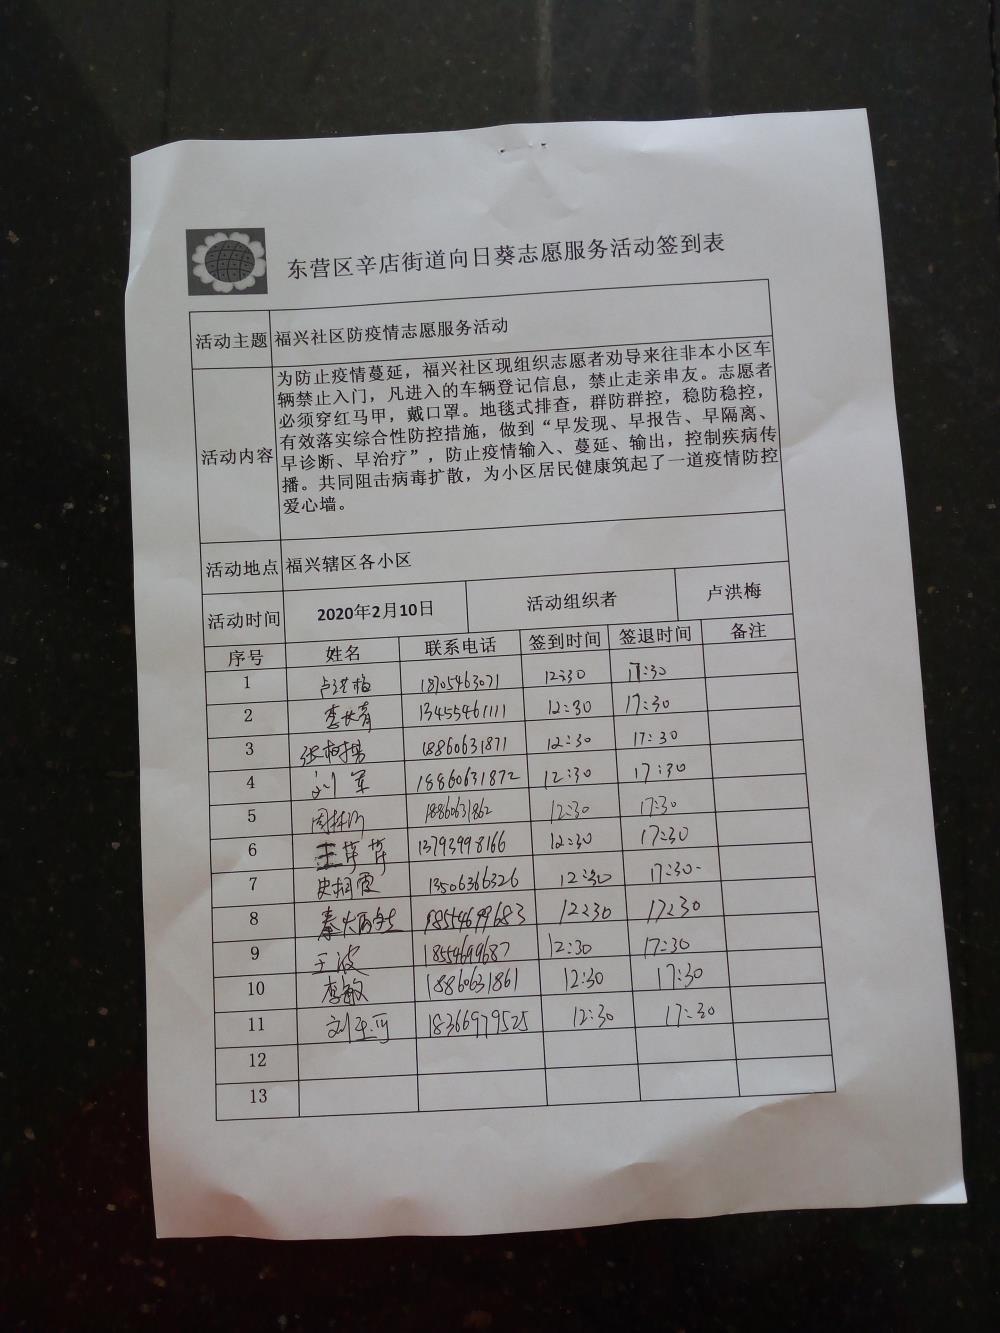 东营区辛店街道向日葵志愿服务活动签到表
活动主题 福兴社区防疫情志愿服务活动
活动内容
为防止疫情蔓延，福兴社区现组织志愿者劝导来往非本小区车
辆禁止入门，凡进入的车辆登记信息，禁止走亲串友。志愿者
必须穿红马甲，戴口罩。地毯式排查，群防群控，稳防稳控，
有效落实综合性防控措施，做到“早发现、早报告、早隔离、
早诊断、早治疗”，防止疫情输入、蔓延、输出，控制疾病传
播。共同阻击病毒扩散，为小区居民健康筑起了一道疫情防控
爱心墙。
活动地点 福兴辖区各小区
活动时间 2020年2月10日 活动组织者 卢洪梅
序号 姓名 联系电话 签到时间 签退时间 备注
1 卢洪梅 18705463071 12:30 17:30
2 李长青 13455461111 12:30 17:30
3 18860631871 12:30 17:30
4 刘军 18860631872 12:30 17:30
5 18860631862 12:30 17:30
6 王芹芹 13793998166 12:30 17:30
7 史桐霞 13506366326 12:30 17:30
8 18554699683 12:30 17:30
9 王波 18554699687 12:30 17:30
10 李敏 18860631861 12:30 17:30
11 18366979525 12:30 17:30
12
13